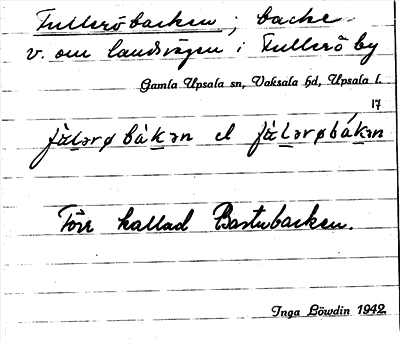 Fulleröbacken; backe
v. om landsvägen i Fullerö by
Gamla Upsala sn, Vaksala hd, Upsala l.
17
el
Förr kallad Bastubacken.
Inga Löwdin 1942.